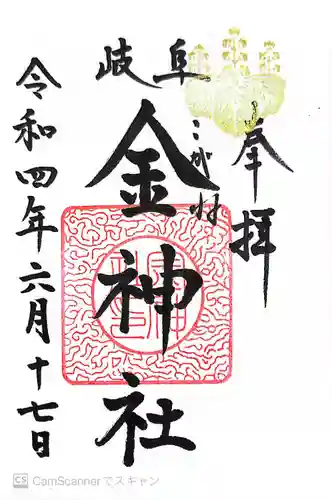 奉拝
岐阜
こがね
金神社
令和四年六月十七日
CS CamScannerでスキャン